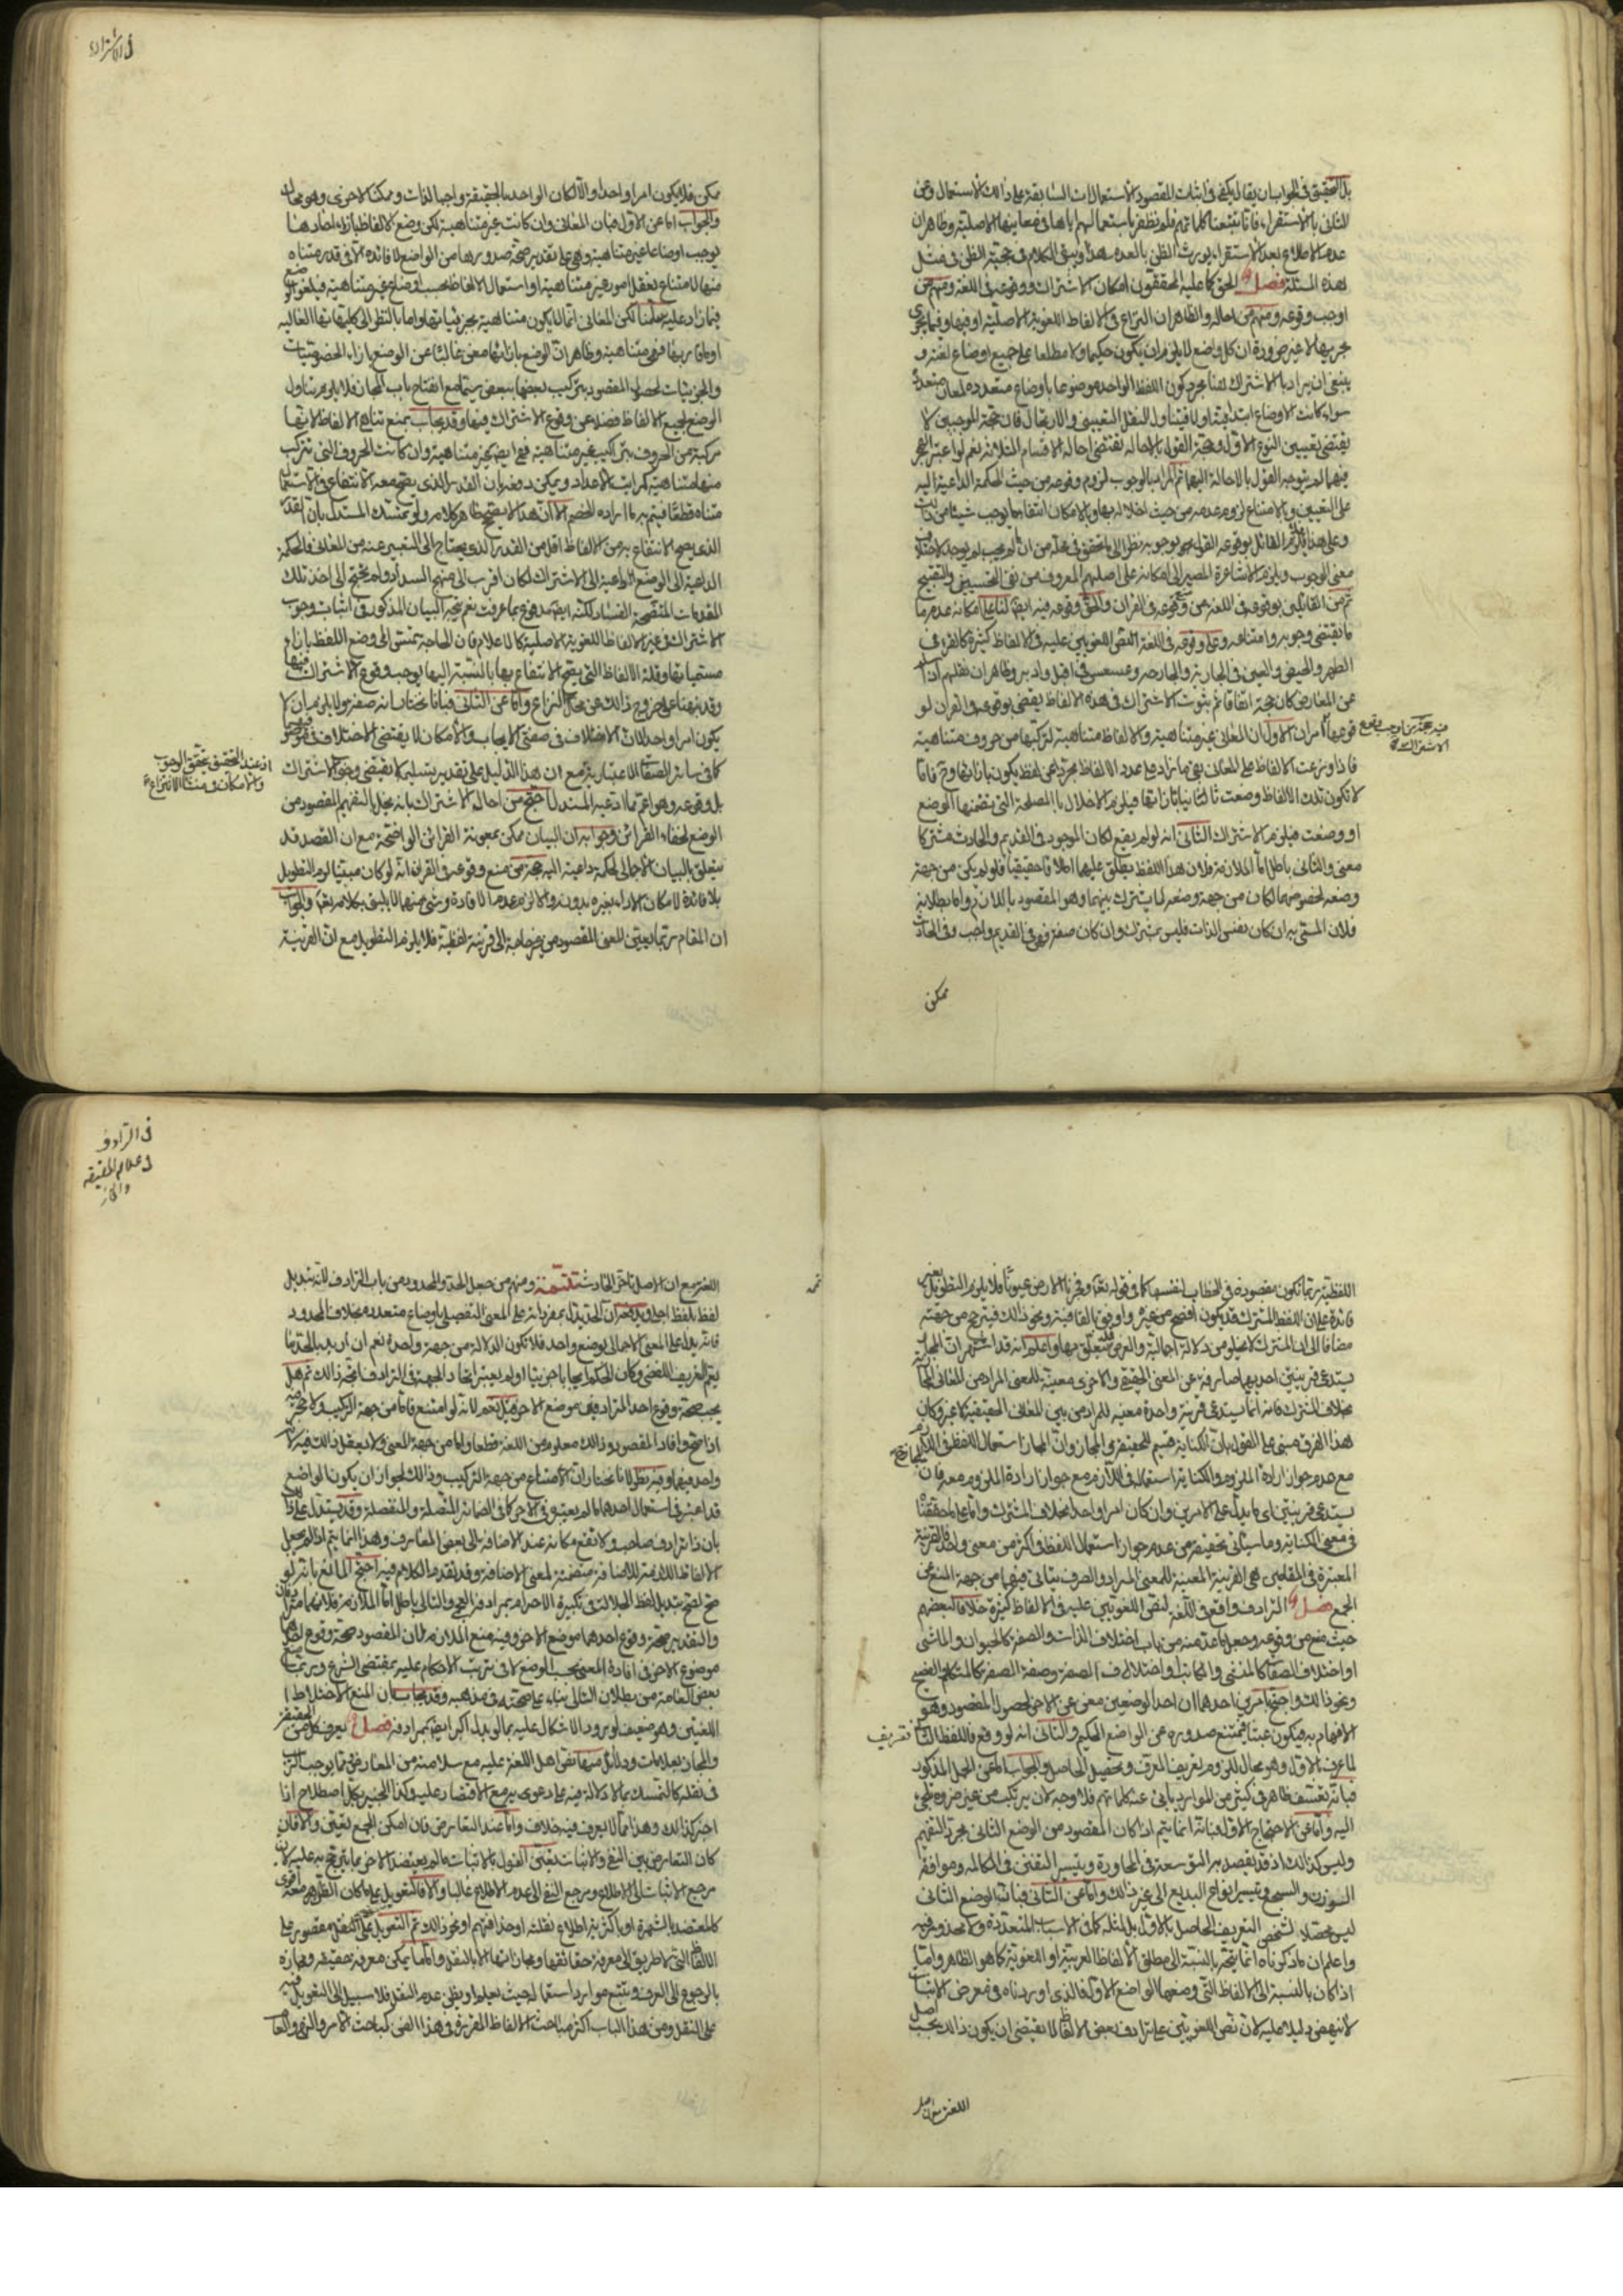 في الاشتراك
بل التحقيق في الجواب ان يقال يكفي في اثبات المقصود الاستعمالات السابقة على ذلك الاستعمال وعن
الثاني بالاستقراء فانا تتبعنا كلماتهم فلم نظفر باستعمالهم اياها في معانيها الاصلية وظاهر ان
عدم الاطلاع بعد الاستقراء يورث الظن بالعدم هذا ويبقى الكلام في حجية الظن في مثل
هذه المسئلة فصل الحق كما عليه المحققون امكان الاشتراك ووقوعه في اللغة ومنهم من
اوجب وقوعه ومنهم من احاله والظاهر ان النزاع في الالفاظ اللغوية الاصلية او فيها وفيما يجري
مجريها لا غير ضرورة ان كل واضع لا يلزم ان يكون حكيما ولا مطلعا على جميع اوضاع لغته و
ينبغي ان يراد بالاشتراك هنا مجرد كون اللفظ الواحد موضوعا باوضاع متعددة لمعان متعددة
سواء كانت الاوضاع ابتدائية او لا فيتناول للنقل التعييني والارتجال فان حجة الموجبين لا
يقتضي تعيين النوع الاول وحجة القول بالاحالة يقتضي احالة الاقسام الثلاثة نعم لو اعتبر الهجر
فيهما لم يتوجه القول بالاحالة اليهما ثم المراد بالوجوب لزوم وقوعه من حيث الحكمة الداعية اليه
على التعيين والامتناع لزوم عدمه من حيث اخلاله بها وبالامكان انتفاء ما يوجب شيئا من ذلك
وعلى هذا فيلزم القائل بوقوعه القول بوجوبه نظرا الى ما تحقق في محله من ان ما لم يجب لم يوجد لاختلاف
معنى الوجوب ويلزم الاشاعرة المصير الى امكانه على اصلهم المعروف من نفي التحسين والتقبيح
ثم من القائلين بوقوعه في اللغة من منع وقوعه في القران والحق وقوعه فيه ايضا لنا على امكانه عدم ما
ما يقتضي وجوبه وامتناعه وعلى وقوعه في اللغة النص اللغويين عليه في الالفاظ كثيرة كالقرء في
الطهر والحيض والعين في الجارية والجارحة وعسعس في اقبل وادبر وظاهر ان نقلهم اذا
عن المعارض كان حجة اتفاقا ثم بثبوت الاشتراك في هذه الالفاظ يقضي بوقوعه في القران لو
قوعها امران الاول ان المعاني غير متناهية والالفاظ متناهية لتركبها من حروف متناهية
فاذا وزعت الالفاظ على المعاني بقي ما زاد على عدد الالفاظ مجردا عن لفظ يكون بازائها وح فاما
لا تكون تلك الالفاظ وضعت ثانيا بازائها فيلزم الاخلال بالمصلحة التي تضمنها الوضع
او وضعت فيلزم الاشتراك الثاني انه لو لم يقع لكان الموجود في القديم والحادث مشتركا
معنى والثاني باطل اما الملازمة فلان هذا اللفظ يطلق عليهما اطلاقا حقيقيا فلو لم يكن من جهة
وضعه لخصوصهما لكان من جهة وضعه لما يشترك بينهما وهو المقصود باللازم واما بطلانه
فلان المسمى به ان كان نفس الذات فليس بمشترك وان كان صفة فهي في القديم واجب وفي الحادث
ممكن
ممكن فلا يكون امرا واحدا والا لكان الواحد بالحقيقة واجبا لذات وممكنا لاخرى وهو محال
والجواب اما عن الاول فبان المعاني وان كانت غير متناهية لكن وضع الالفاظ بازاء احادها
يوجب اوضاعا غير متناهية وهي على تقدير صحة صدورها من الواضع لا فائدة الا في قدر متناه
منها لامتناع تعقل امور غير متناهية او استعمال الالفاظ بحسب اوضاع غير متناهية فيلغو الوضع
فيما زاد عليه سلمنا لكن المعاني انما لا يكون متناهية بجزئياتها واما بالنظر الى كلياتها العالية
او ما قاربها فهي متناهية وظاهر ان الوضع بازائها مغن غالبا عن الوضع بازاء الخصوصيات
والجزئيات لحصول المقصود بتركيب بعضها ببعض سيما مع انفتاح باب المجاز فلا يلزم تناول
الوضع لجميع الالفاظ فضلا عن وقوع الاشتراك فيها وقد يجاب بمنع تناهي الالفاظ لانها
مركبة من الحروف بتراكيب غير متناهية فهي ايضا غير متناهية وان كانت الحروف التي تتركب
منها متناهية كمراتب الاعداد ويمكن دفعه بان القدر الذي يصح معه الانتفاع في الاستعمال
متناه قطعا فيتم به ما اراده الخصم الا ان هذا لا يصحح ظاهر كلامه ولو تمسك المستدل بان القدر
الذي يصح الانتفاع به من الالفاظ اقل من القدر الذي يحتاج الى التعبير عنه من المعاني فالحكمة
الداعية الى الوضع داعية الى الاشتراك لكان اقرب الى منهج السداد ولم يحتج الى اخذ تلك
المقدمات المتضحة الفساد لكنه ايضا مدفوع بما عرفت نعم يتجه البيان المذكور في اثبات وجوب
الاشتراك في غير الالفاظ اللغوية الاصلية كالاعلام فان الحاجة تمس الى وضع اللفظ بازاء
مسمياتها وقلة الالفاظ التي يصح الانتفاع بها بالنسبة اليها يوجب وقوع الاشتراك فيها
وقد نبهنا على خروج ذلك عن محل النزاع واما عن الثاني فبانا نختار انه صفة ولا يلزم ان لا
يكون امرا واحدا لان الاختلاف في صفتي الايجاب والامكان لا يقتضي الاختلاف في موصوفهما
كما في سائر الصفات الاعتبارية مع ان هذا الدليل على تقدير تسليمه لا يقتضي وجوب الاشتراك
بل وقوعه وهو اعم مما ادعيه المستدل احتج من احال الاشتراك بانه يخل بالتفهيم المقصود من
الوضع لخفاء القرائن وجوابه ان البيان ممكن بمعونة القرائن الواضحة مع ان القصد قد
يتعلق بالبيان الاجمالي لحكمة داعية اليه حجة من منع وقوعه في القران انه لو كان مبينا لزم التطويل
بلا فائدة لامكان الاداء بغيره بدونه والا لزم عدم الافادة وشئ منهما لا يليق بكلامه تعالى والجواب
ان المقام ربما يعين المعنى المقصود من غير حاجة الى قرينة لفظية فلا يلزم التطويل مع ان القرينة
اذ عند المحقق يتحقق الوجوب
والامكان ومنشا الانتزاع
في الترادف
وعلائم الحقيقة
والمجاز
اللفظية ربما تكون مقصودة في الخطاب لنفسها كما في قوله تعالى وفجرنا الارض عيونا فلا يلزم التطويل بغير
فائدة على ان اللفظ المشترك قد يكون افصح من غيره واوفق بالقافية ونحو ذلك فيترجح من جهته
مضافا الى ان المشترك لا يخلو من دلالة اجمالية والغرض قد يتعلق بها واعلم انه قد اشتهر ان المجاز
يستدعي قرينتين احديهما صارفة عن المعنى الحقيقي والاخرى معينة للمعنى المراد من المعاني المجازية
بخلاف المشترك فانه انما يستدعي قرينة واحدة معينة للمراد من بين المعاني الحقيقية لا غير وكان
هذا الفرق مبني على القول بان الكناية قسيم للحقيقة والمجاز وان المجاز استعمال اللفظ في اللازم
مع عدم جواز ارادة الملزوم والكناية استعماله في اللازم مع جواز ارادة الملزوم معه فان
يستدعي قرينتين اي ما يدل على الامرين وان كان امرا واحدا بخلاف المشترك واما على ما حققنا
في معنى الكناية وما سيأتي تحقيقه من عدم جواز استعمال اللفظ في اكثر من معنى واحد فالقرينة
المعتبرة في المقامين هي القرينة المعينة للمعنى المراد والصرف يتأتى فيهما من جهة المنع عن
الجمع فصل الترادف واقع في اللغة لنص اللغويين عليه في الالفاظ كثيرة خلافا لبعضهم
حيث منع من وقوعه وجعل ما عد منه من باب اختلاف الذات والصفة كالحيوان والماشي
او اختلاف الصفات كالمنشي والكاتب او اختلاف الصفة وصفة الصفة كالمتكلم والفصيح
ونحو ذلك واحتج بامرين احدهما ان احد الوضعين مغن عن الاخر لحصول المقصود وهو
الافهام به فيكون عبثا فيمتنع صدوره عن الواضع الحكيم والثاني انه لو وقع فاللفظ الثاني تعريف
لما عرف الاول وهو محال للزوم تعريف المعرف وتحصيل الحاصل والجواب اما عن الجعل المذكور
فبانه تعسف ظاهر في كثير من الموارد يابى عنه كلماتهم فلا وجه لان يرتكب من غير ضرورة تلجئ
اليه واما عن الاحتجاج الاول فبانه انما يتم اذا كان المقصود من الوضع الثاني مجرد التفهيم
وليس كذلك اذ قد يقصد به التوسعة في المحاورة وتيسير التفنن في المكالمة وموافقة
الوزن والسجع وتيسير انواع البديع الى غير ذلك واما عن الثاني فبان الوضع الثاني
ليس محصلا لشخص التعريف الحاصل بالاول بل لمثله كما في الاسباب المتعددة ولا محذور فيه
واعلم ان ما ذكرناه انما يتجه بالنسبة الى مطلق الالفاظ العربية او اللغوية كما هو الظاهر واما
اذا كان بالنسبة الى الالفاظ التي وضعها الواضع الاول فالذي اوردناه في معرض الاثبات
لا ينهض دليلا عليه لان نص اللغويين على ترادف بعض الالفاظ لا يقتضي ان يكون ذلك بحسب اصل
اللغة
اللغة مع ان الاصل تاخر الحادث تتمة ومنهم من جعل الحد والمحدود من باب الترادف لانه تبديل
لفظ بلفظ اجلى ويدفعه ان الحد يدل بمفرداته على المعنى التفصيلي باوضاع متعددة بخلاف المحدود
فانه يدل على المعنى الاجمالي بوضع واحد فلا تكون الدلالة من جهة واحدة نعم ان اريد بالحد ما
يعم التعريف اللفظي وكان الحكم ايجابا جزئيا او لم يعتبر اتحاد الجهة في الترادف اتجه ذلك ثم هل
يجب صحة وقوع احد المترادفين موضع الاخر قيل نعم لانه لو امتنع فاما من جهة التركيب ولا حجر فيه
اذا صح وافاد المقصود وذلك معلوم من اللغة قطعا واما من جهة المعنى ولا يعقل ذلك فيه لانه
واحد فيهما وفيه نظر لانا نختار ان الامتناع من جهة التركيب وذلك لجواز ان يكون الواضع
قد اعتبر في استعمال احدهما ما لم يعتبره في الاخر كما في الضمائر المتصلة والمنفصلة وقد يستدل على ذلك
بان ذا يرادف صاحب ولا تقع مكانه عند الاضافة الى بعض المعارف وهذا انما يتم اذا لم يجعل
الالفاظ اللازمة للاضافة متضمنة لمعنى الاضافة وقد تقدم الكلام فيه احتج المانع بانه لو
صح لصح تبديل لفظ الجلالة في تكبيرة الاحرام بمرادفه العجمي والتالي باطل اما الملازمة فلانهما مترادفان
والتقدير صحة وقوع احدهما موضع الاخر وفيه منع الملازمة لان المقصود صحة وقوع احدهما
موضوع الاخر في افادة المعنى بحسب الوضع لا في ترتيب الاحكام عليه بمقتضى الشرع وربما منع
بعض العامة من بطلان التالي بناء على صحته في مذهبه وقد يجاب بان المنع لاختلاط
اللغتين وهو ضعيف لورود الاشكال عليه بما لو بدل اكبر ايضا بمرادفه فصل يعرف كل من الحقيقة
والمجاز بعلامات ودلائل منها نص اهل اللغة عليه مع سلامته من المعارض ومما يوجب الريب
في نقله كالتمسك بما لا دلالة فيه على دعوى به مع الاقتصار عليه وكذا الخبير بكل اصطلاح اذا
اخبر كذلك وهذا مما لا يعرف فيه خلاف واما عند التعارض فان امكن الجمع تعين والا فان
كان التعارض بين النفي والاثبات تعين القول بالاثبات ما لم يعتضد الاخر بما يترجح به عليه لان
مرجع الاثبات الى الاطلاع ومرجع النفي الى عدم الاطلاع غالبا والا فالتعويل على ما كان الظن معه اقوى
كالمعتضد بالشهرة او باكثرية اطلاع نقلته او حذاقتهم او نحو ذلك ثم التعويل على النقل مقصور على
الالفاظ التي لا طريق الى معرفة حقائقها ومجازاتها الا بالنقل واما ما يمكن معرفة حقيقته ومجازه
بالرجوع الى العرف وتتبع موارد استعماله حيث نعلم او يظن عدم النقل فلا سبيل الى التعويل فيه
على النقل ومن هذا الباب اكثر مباحث الالفاظ المقررة في هذا الفن كمباحث الامر والنهي والعام